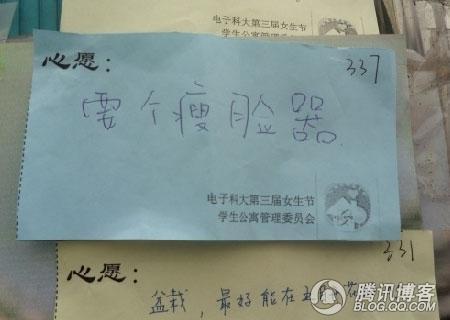 电子科大第三届女生节
学生公寓管理委员会
心愿：
337
要个瘦脸器
电子科大第三届女生节
学生公寓管理委员会
331
心愿：
盆栽，最好能在五
腾讯博客
BLOG.QQ.COM